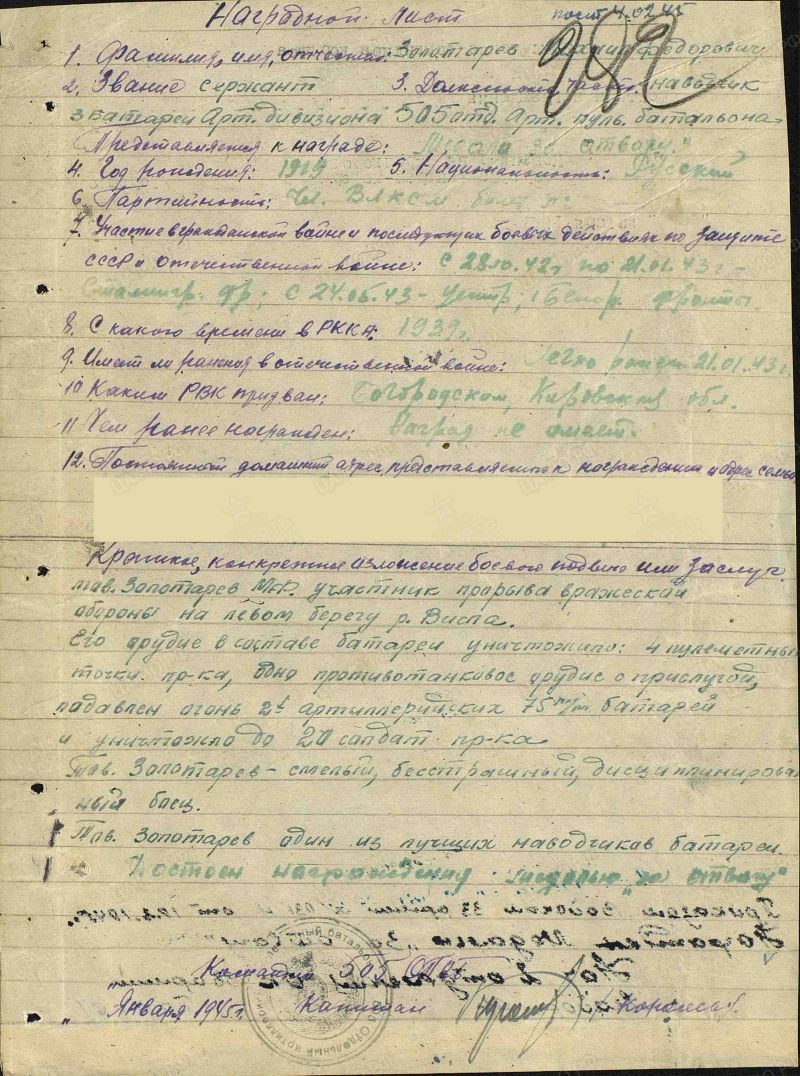 Наградной лист
пост. 4.02.45
1. Фамилия, имя, отчество: Золотарев Михаил Федорович
2. Звание сержант 3. Должность, часть: наводчик
3 батареи Арт. дивизиона 505 отд. Арт. пуль. батальона
Представляется к награде: Медаль за отвагу."
4. Год рождения: 1919 5. Национальность: Русский
6. Партийность: Чл. ВЛКСМ
7. Участие в гражданской войне и последующих боевых действиях по защите
СССР и отечественной войне: с 28.10.42г по 21.01.43 г-
Сталингр. фр; с 24.05.43 - центр; 1 Белор. фронты
8. С какого времени в РККА: 1939г.
9. Имеет ли ранения в отечественной войне: легко ранен 21.01.43 г
10 Каким РВК призван: Богородском, Кировской обл.
11 Чем ранее награжден: Наград не имеет.
12. Постоянный домашний адрес представляемого к награждению и адрес семьи
Краткое, конкретное изложение боевого подвига или заслуг
тов. Золотарев М.Ф. участник прорыва вражеской
обороны на левом берегу р. Висла.
Его орудие в составе батареи уничтожило: 4 пулеметных
точки пр-ка, одно противотанковое орудие с прислугой,
подавлен огонь 2х артиллерийских 75 м/м батарей
и уничтожило до 20 солдат пр-ка
Тов. Золотарев - смелый, бесстрашный, дисциплинирован
ный боец.
Тов. Золотарев один из лучших наводчиков батареи.
Достоен награждения медалью "за отвагу"
Командир 505 ОПАБ
Января 1945г. Капитан